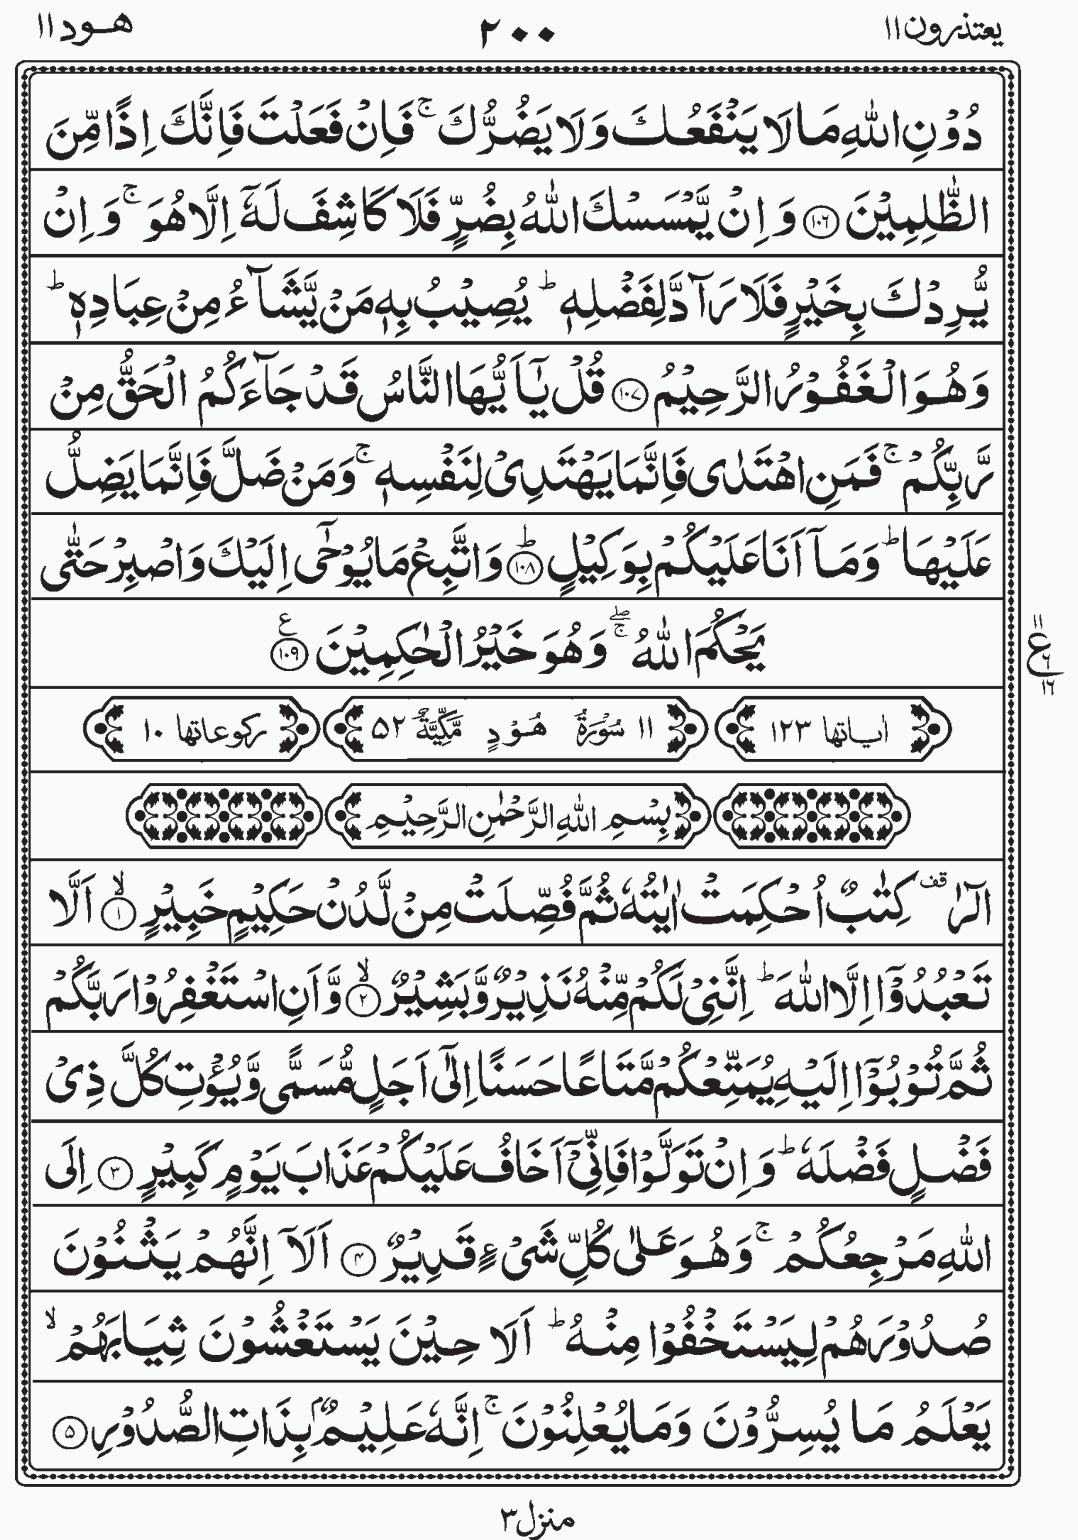 یعتذرون ۱۱
۲۰۰
ھود ۱۱
دُوْنِ اللّٰهِ مَا لَا یَنْفَعُكَ وَ لَا یَضُرُّكَ ۚ فَاِنْ فَعَلْتَ فَاِنَّكَ اِذًا مِّنَ
الظّٰلِمِیْنَ ۝۱۰۶ وَ اِنْ یَّمْسَسْكَ اللّٰهُ بِضُرٍّ فَلَا كَاشِفَ لَهٗۤ اِلَّا هُوَ ۚ وَ اِنْ
یُّرِدْكَ بِخَیْرٍ فَلَا رَآدَّ لِفَضْلِهٖ ؕ یُصِیْبُ بِهٖ مَنْ یَّشَآءُ مِنْ عِبَادِهٖ ؕ
وَ هُوَ الْغَفُوْرُ الرَّحِیْمُ ۝۱۰۷ قُلْ یٰۤاَیُّهَا النَّاسُ قَدْ جَآءَكُمُ الْحَقُّ مِنْ
رَّبِّكُمْ ۚ فَمَنِ اهْتَدٰی فَاِنَّمَا یَهْتَدِیْ لِنَفْسِهٖ ۚ وَ مَنْ ضَلَّ فَاِنَّمَا یَضِلُّ
عَلَیْهَا ؕ وَ مَاۤ اَنَا عَلَیْكُمْ بِوَكِیْلٍ ۝۱۰۸ؕ وَ اتَّبِعْ مَا یُوْحٰۤی اِلَیْكَ وَ اصْبِرْ حَتّٰی
یَحْكُمَ اللّٰهُ ۖۚ وَ هُوَ خَیْرُ الْحٰكِمِیْنَ ۝۱۰۹ ع
۱۱
ع
۶
۱۶
اٰیاتها ۱۲۳ ۱۱ سُوْرَةُ هُوْدٍ مَّكِّیَّةٌ ۵۲ ركوعاتها ۱۰
بِسْمِ اللّٰهِ الرَّحْمٰنِ الرَّحِیْمِ
الٓرٰ ۫ كِتٰبٌ اُحْكِمَتْ اٰیٰتُهٗ ثُمَّ فُصِّلَتْ مِنْ لَّدُنْ حَكِیْمٍ خَبِیْرٍ ۝۱ۙ اَلَّا
تَعْبُدُوْۤا اِلَّا اللّٰهَ ؕ اِنَّنِیْ لَكُمْ مِّنْهُ نَذِیْرٌ وَّ بَشِیْرٌ ۝۲ۙ وَّ اَنِ اسْتَغْفِرُوْا رَبَّكُمْ
ثُمَّ تُوْبُوْۤا اِلَیْهِ یُمَتِّعْكُمْ مَّتَاعًا حَسَنًا اِلٰۤی اَجَلٍ مُّسَمًّی وَّ یُؤْتِ كُلَّ ذِیْ
فَضْلٍ فَضْلَهٗ ؕ وَ اِنْ تَوَلَّوْا فَاِنِّیْۤ اَخَافُ عَلَیْكُمْ عَذَابَ یَوْمٍ كَبِیْرٍ ۝۳ اِلَی
اللّٰهِ مَرْجِعُكُمْ ۚ وَ هُوَ عَلٰی كُلِّ شَیْءٍ قَدِیْرٌ ۝۴ اَلَاۤ اِنَّهُمْ یَثْنُوْنَ
صُدُوْرَهُمْ لِیَسْتَخْفُوْا مِنْهُ ؕ اَلَا حِیْنَ یَسْتَغْشُوْنَ ثِیَابَهُمْ ۙ
یَعْلَمُ مَا یُسِرُّوْنَ وَ مَا یُعْلِنُوْنَ ۚ اِنَّهٗ عَلِیْمٌۢ بِذَاتِ الصُّدُوْرِ ۝۵
منزل ۳